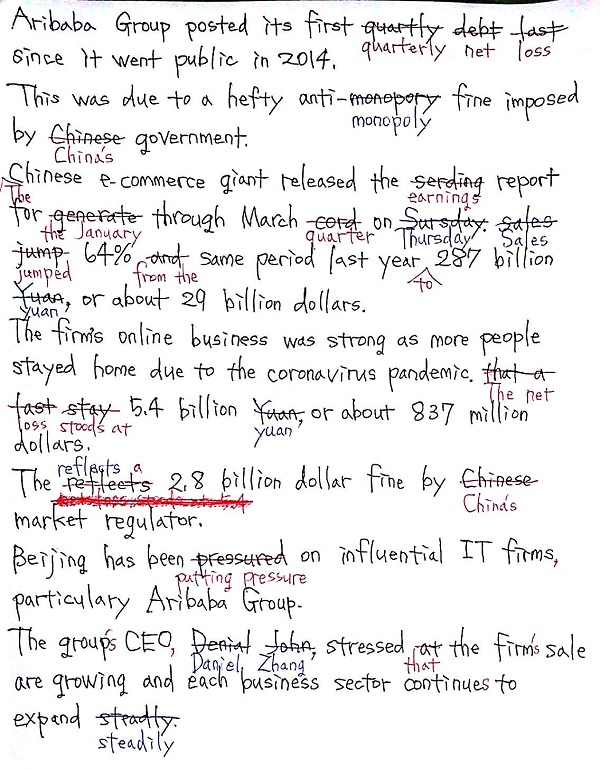 Aribaba Group posted its first quartly debt last
quarterly net loss
since it went public in 2014.
This was due to a hefty anti-monopory fine imposed
monopoly
by Chinese government.
China's
The
Chinese e-commerce giant released the serding report
earnings
for generate through March cord on Sarsday. sales
the January quarter Thursday Sales
jump 64% and same period last year 287 billion
jumped from the to
Yuan, or about 29 billion dollars.
yuan
The firm's online business was strong as more people
stayed home due to the coronavirus pandemic. that a
The net
fast stay 5.4 billion Yuan, or about 837 million
loss stoods at yuan
dollars.
reflects a
The reflects 2.8 billion dollar fine by Chinese
China's
market regulator.
Beijing has been pressured on influential IT firms,
putting pressure
particulary Aribaba Group.
The group's CEO, Denial John, stressed at the firm's sale
Daniel, Zhang that
are growing and each business sector continues to
expand steadly.
steadily